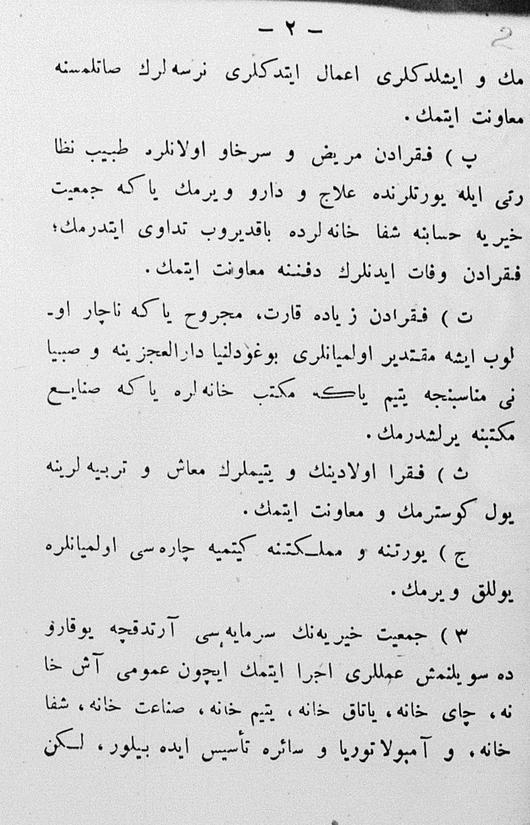 — ٢ —
مك و ايشلدكلرى اعمال ايتدكلرى نرسه‌لرك صاتلمسنه
معاونت ايتمك.
پ) فقرادن مريض و سرخاو اولانلره طبيب نظا
رتى ايله يورتلرنده علاج و دارو ويرمك ياكه جمعيت
خيريه حسابنه شفا خانه‌لرده باقديروب تداوى ايتدرمك؛
فقرادن وفات ايدنلرك دفننه معاونت ايتمك.
ت) فقرادن زياده قارت، مجروح ياكه ناچار او-
لوب ايشه مقتدير اولميانلرى بوغودلنيا دارالعجزينه و صبيا
نى مناسبنجه يتيم ياكه مكتب خانه‌لره ياكه صنايع
مكتبنه يرلشدرمك.
ث) فقرا اولادينك و يتيملرك معاش و تربيه‌لرينه
يول كوسترمك و معاونت ايتمك.
ج) يورتنه و مملكتنه كيتميه چاره‌سى اولميانلره
يوللق ويرمك.
٣) جمعيت خيريه‌نك سرمايه‌سى آرتدقچه يوقارو
ده سويلنمش عمللرى اجرا ايتمك ايچون عمومى آش خا
نه، چاى خانه، ياتاق خانه، يتيم خانه، صناعت خانه، شفا
خانه، و آمبولاتوريا و سائره تأسيس ايده بيلور، لكن